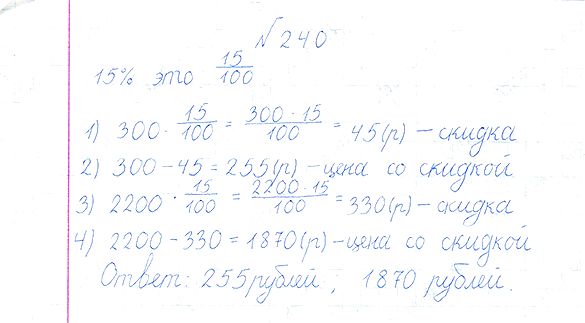 № 240
15% это 15/100
1) 300 · 15/100 = 300 · 15/100 = 45(р) – скидка
2) 300 – 45 = 255(р) – цена со скидкой
3) 2200 · 15/100 = 2200 · 15/100 = 330(р) – скидка
4) 2200 – 330 = 1870(р) – цена со скидкой
Ответ: 255 рублей; 1870 рублей.